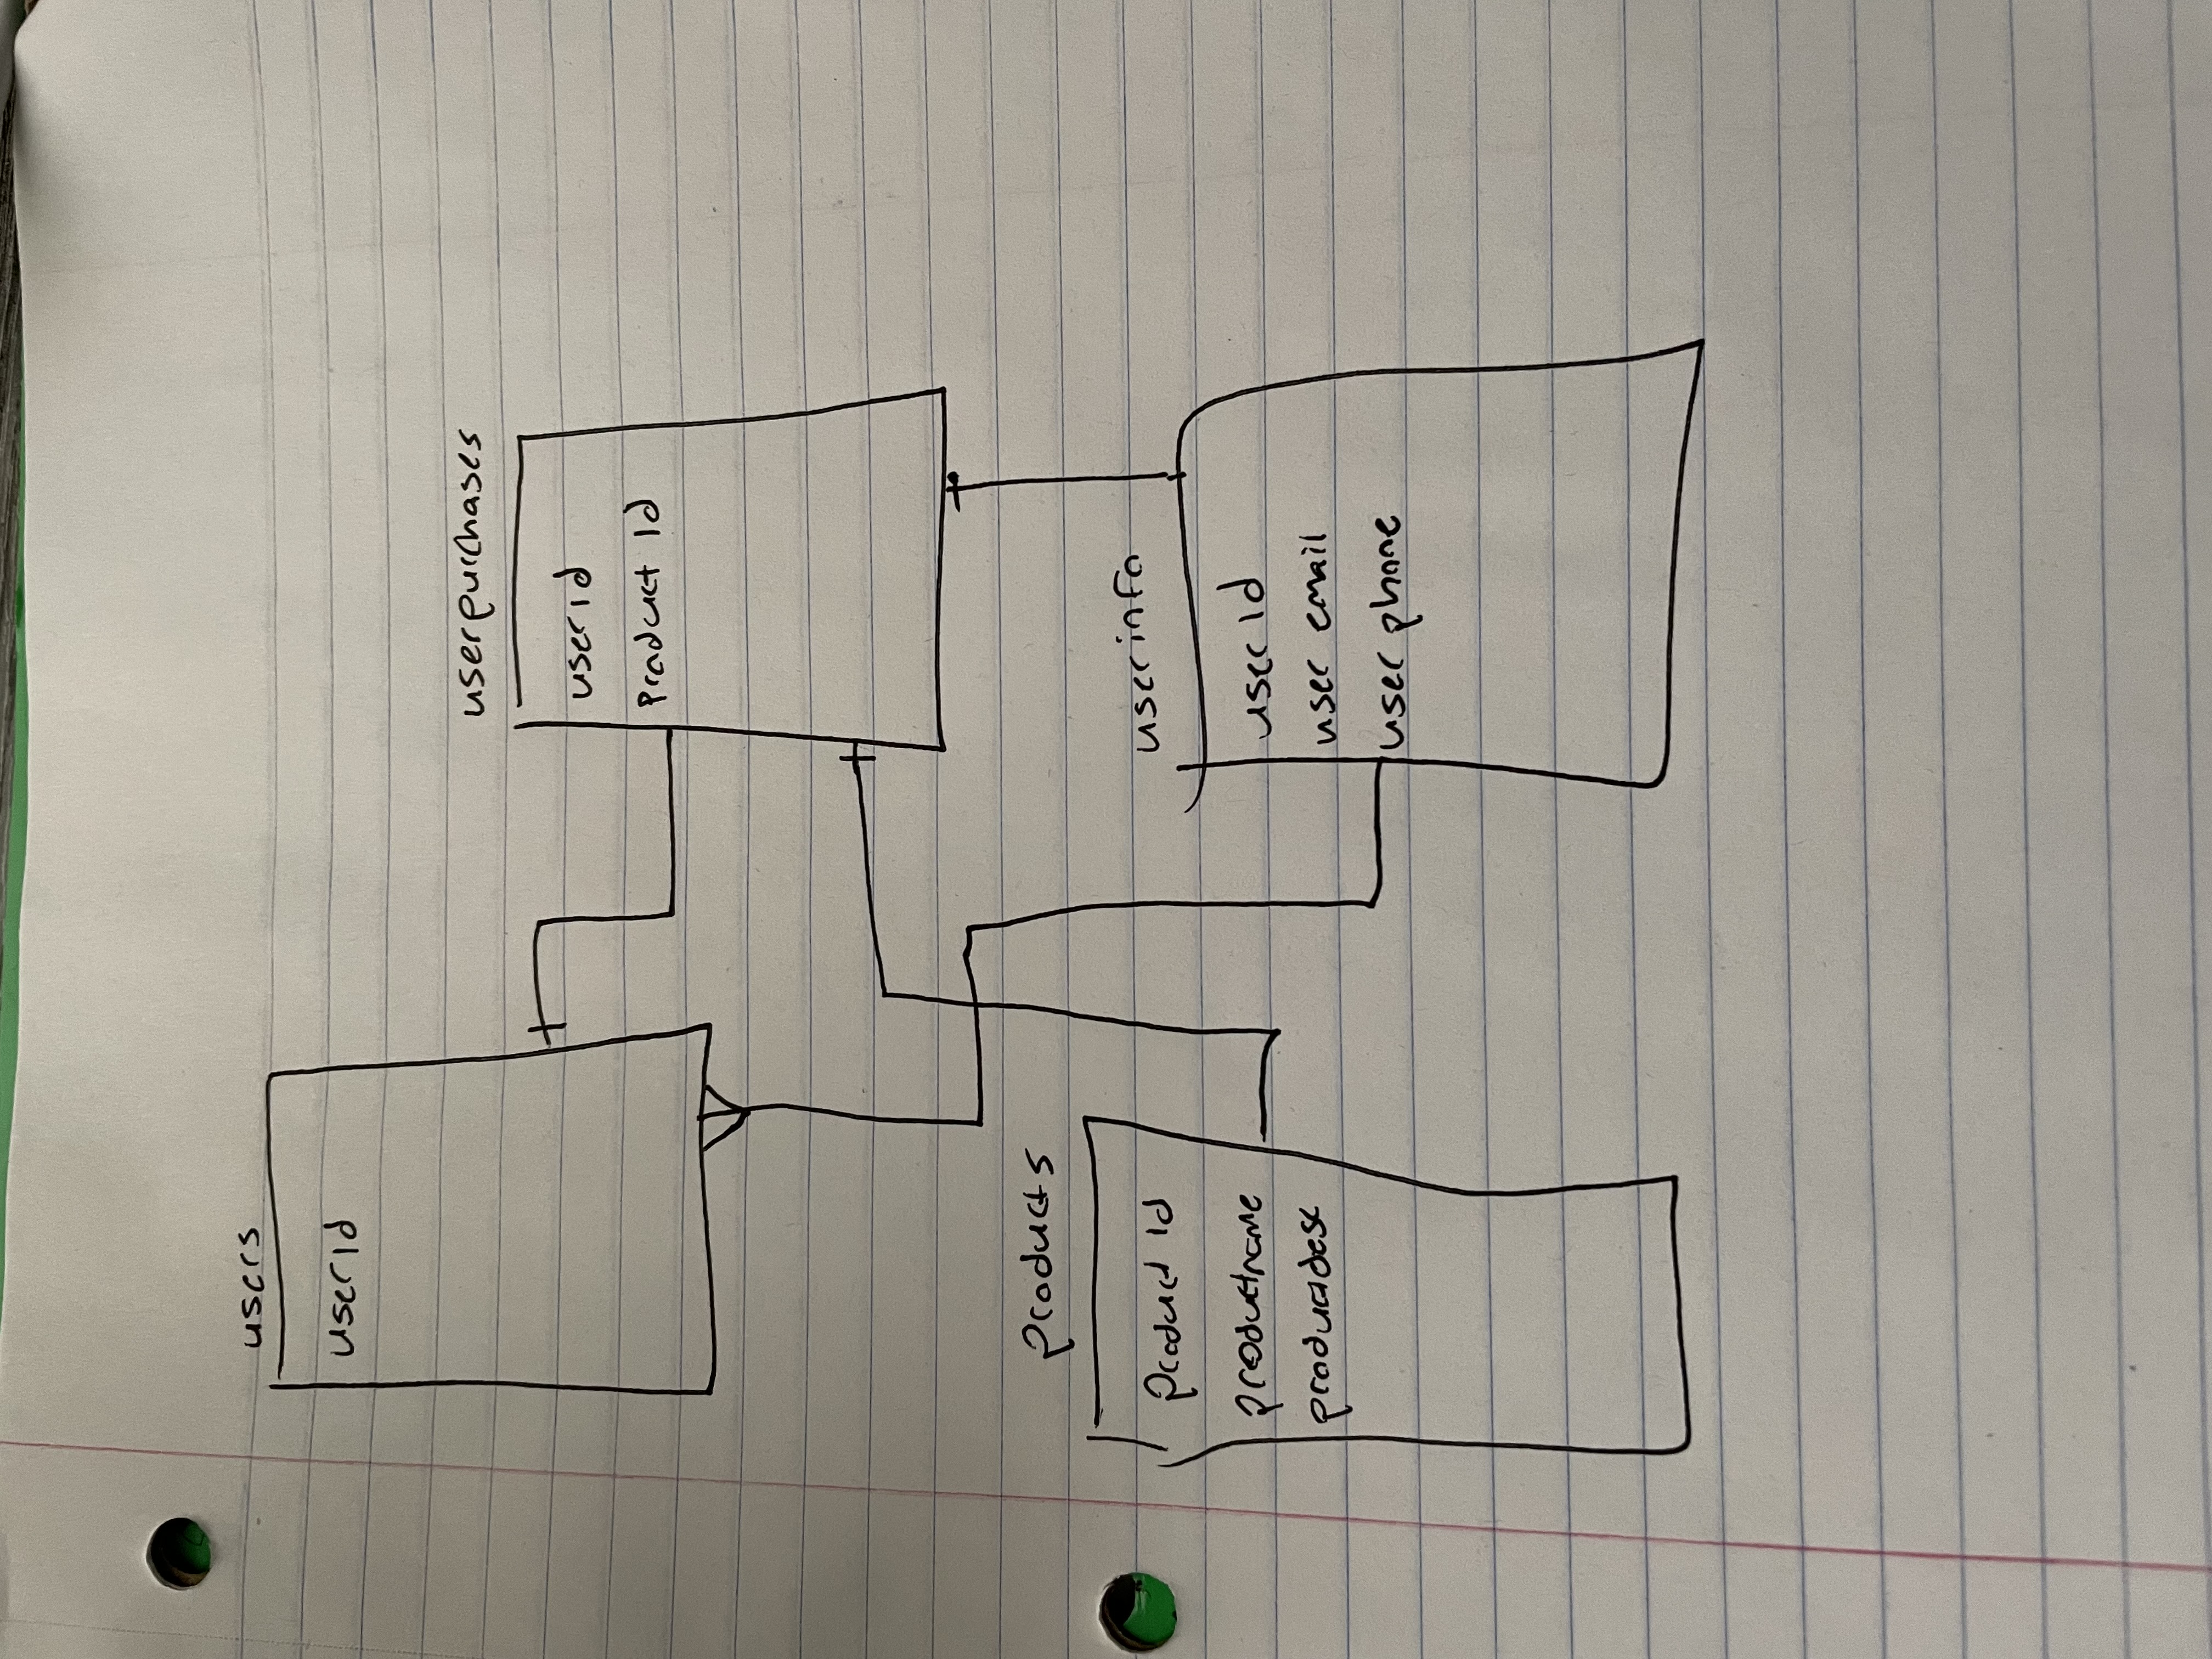 users
userId
userpurchases
userid
Product Id
products
product id
productname
productdesc
userinfo
user Id
user email
user phone